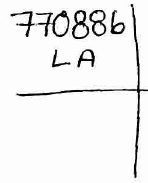 770886
LA